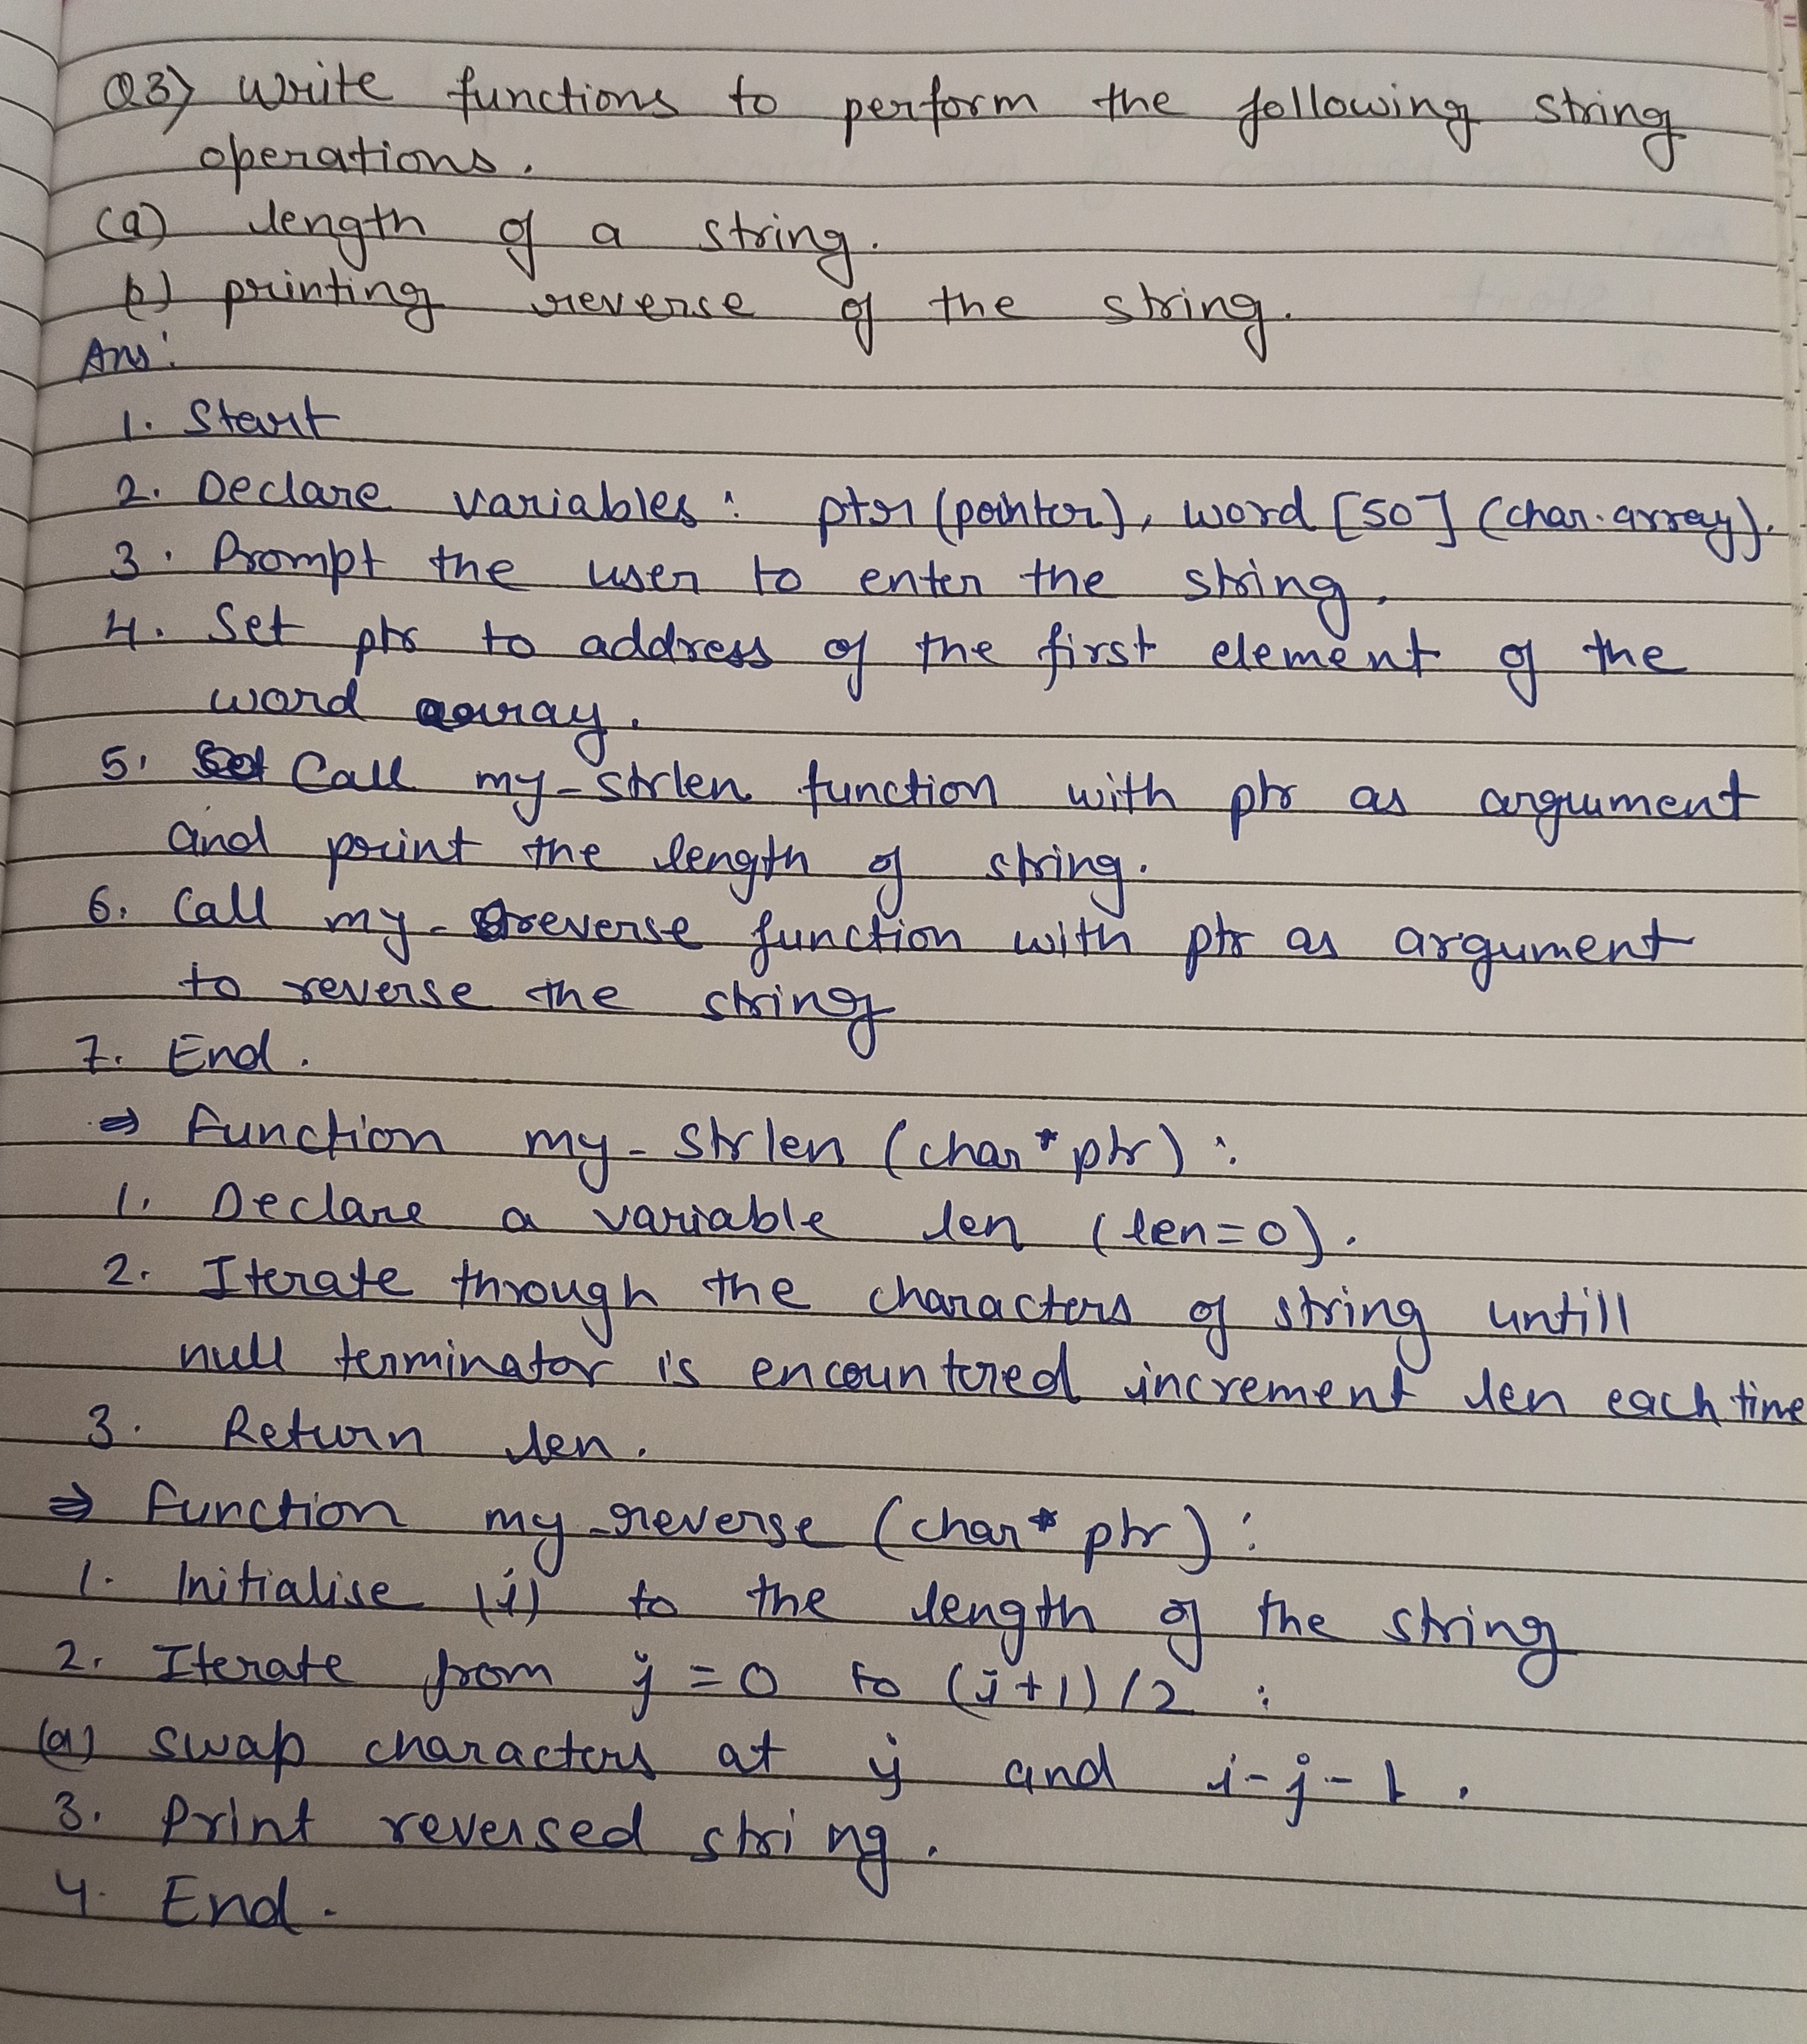 Q3) Write functions to perform the following string
operations.
(a) length of a string.
b) printing reverse of the string.
Ans:
1. Start
2. Declare variables: ptr (pointer), word [50] (char.array).
3. Prompt the user to enter the string.
4. Set ptr to address of the first element of the
word array.
5. Call my-strlen function with ptr as argument
and print the length of string.
6. Call my-reverse function with ptr as argument
to reverse the string
7. End.
⇒ Function my-strlen (char* ptr):
1. Declare a variable len (len=0).
2. Iterate through the characters of string untill
null terminator is encountered increment len each time
3. Return len.
⇒ Function my-reverse (char* ptr):
1. Initialise (i) to the length of the string
2. Iterate from j = 0 to (j+1)/2 :
(a) swap characters at j and i-j-1.
3. Print reversed string.
4. End.